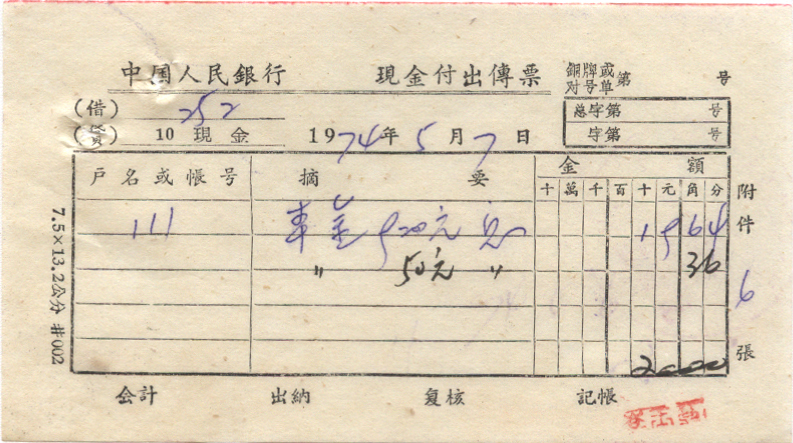 中国人民銀行 現金付出傳票 銅牌或对号单第 号
(借) 252 总字第 号
(貸) 10 現金 1974年5月7日 字第 号
戶名或帳号 摘要 金額
十 萬 千 百 十 元 角 分
111 元 1 9 6 4
〃 50元 〃 36
2000
附件 6 張
7.5×13.2公分 #002
会計 出納 复核 記帳